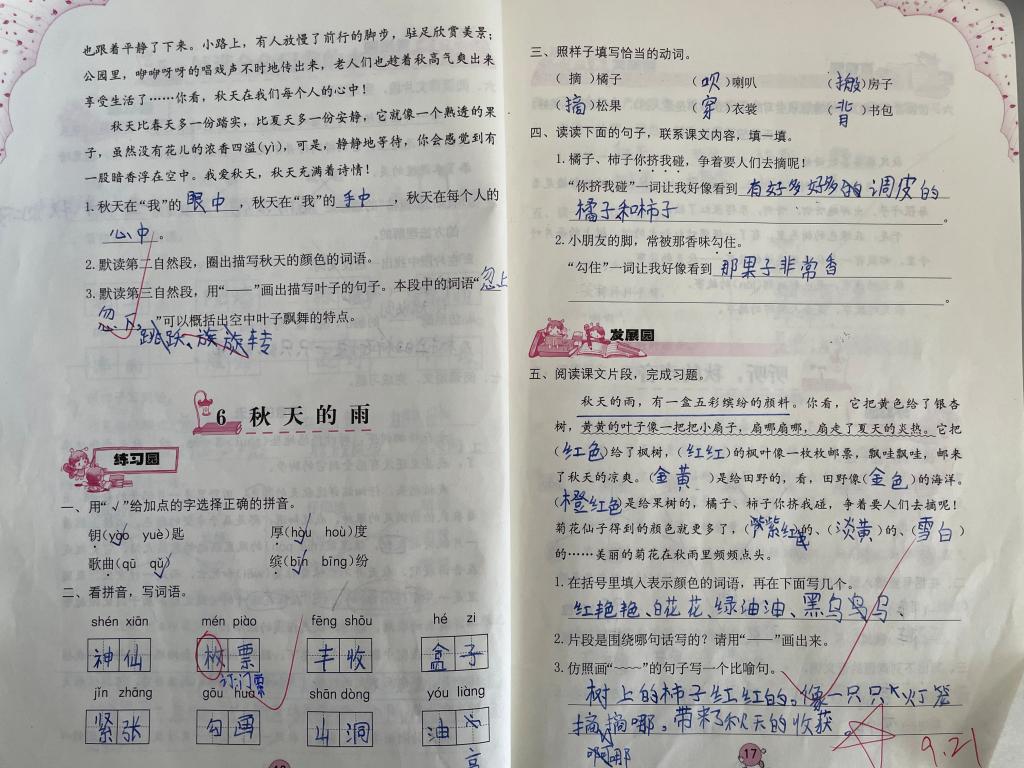 也跟着平静了下来。小路上，有人放慢了前行的脚步，驻足欣赏美景；
公园里，咿咿呀呀的唱戏声不时地传出来，老人们也趁着秋高气爽出来
享受生活了……你看，秋天在我们每个人的心中！
秋天比春天多一份踏实，比夏天多一份安静，它就像一个熟透的果
子，虽然没有花儿的浓香四溢(yì)，可是，静静地等待，你会感觉到有
一股暗香浮在空中。我爱秋天，秋天充满着诗情！
1. 秋天在“我”的 眼中 ，秋天在“我”的 手中 ，秋天在每个人的
心中 。
2. 默读第二自然段，圈出描写秋天的颜色的词语。
3. 默读第三自然段，用“——”画出描写叶子的句子。本段中的词语“忽上
忽下”可以概括出空中叶子飘舞的特点。
跳跃、旋转
6 秋天的雨
练习园
一、用“√”给加点的字选择正确的拼音。
钥(yào yuè)匙 厚(hòu hòu)度
歌曲(qū qǔ) 缤(bīn bīng)纷
二、看拼音，写词语。
shén xiān mén piào fēng shōu hé zi
神仙 票 丰收 盒子
门票
jǐn zhāng gōu huà shān dòng yóu liàng
紧张 勾画 山洞 油
亮
三、照样子填写恰当的动词。
( 摘 )橘子 ( 吹 )喇叭 ( 搬 )房子
( 摘 )松果 ( 穿 )衣裳 ( 背 )书包
四、读读下面的句子，联系课文内容，填一填。
1. 橘子、柿子你挤我碰，争着要人们去摘呢！
“你挤我碰”一词让我好像看到 有好多好多的调皮的
橘子和柿子 。
2. 小朋友的脚，常被那香味勾住。
“勾住”一词让我好像看到 那果子非常香
。
发展园
五、阅读课文片段，完成习题。
秋天的雨，有一盒五彩缤纷的颜料。你看，它把黄色给了银杏
树，黄黄的叶子像一把把小扇子，扇哪扇哪，扇走了夏天的炎热。它把
(红色)给了枫树，(红红)的枫叶像一枚枚邮票，飘哇飘哇，邮来
了秋天的凉爽。(金黄 )是给田野的，看，田野像(金色)的海洋。
(橙红色)是给果树的，橘子、柿子你挤我碰，争着要人们去摘呢！
菊花仙子得到的颜色就更多了，(紫红的、(淡黄)的、(雪白)
的……美丽的菊花在秋雨里频频点头。
1. 在括号里填入表示颜色的词语，再在下面写几个。
红艳艳、白花花、绿油油、黑乌乌、
2. 片段是围绕哪句话写的？请用“——”画出来。
3. 仿照画“﹏﹏”的句子写一个比喻句。
树上的柿子红红的。像一只只灯笼
摘摘哪。带来了秋天的收获 。
17
9.21